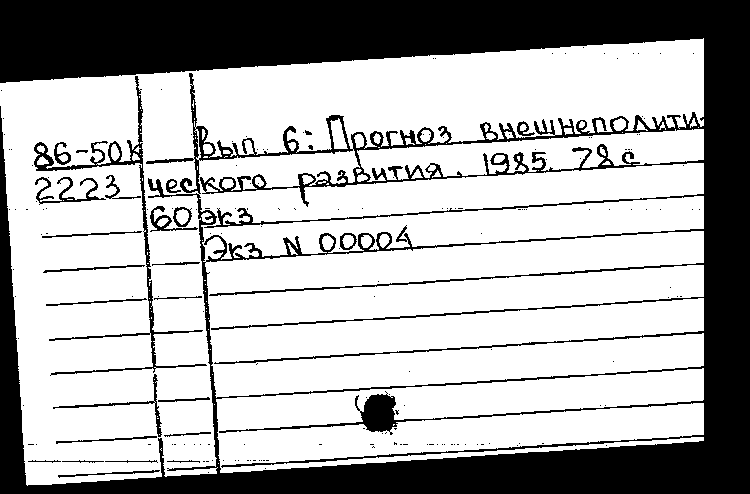 86-50К Вып. 6: Прогноз внешнеполити-
2223 ческого развития. 1985. 78 с.
60 экз.
Экз. N 00004